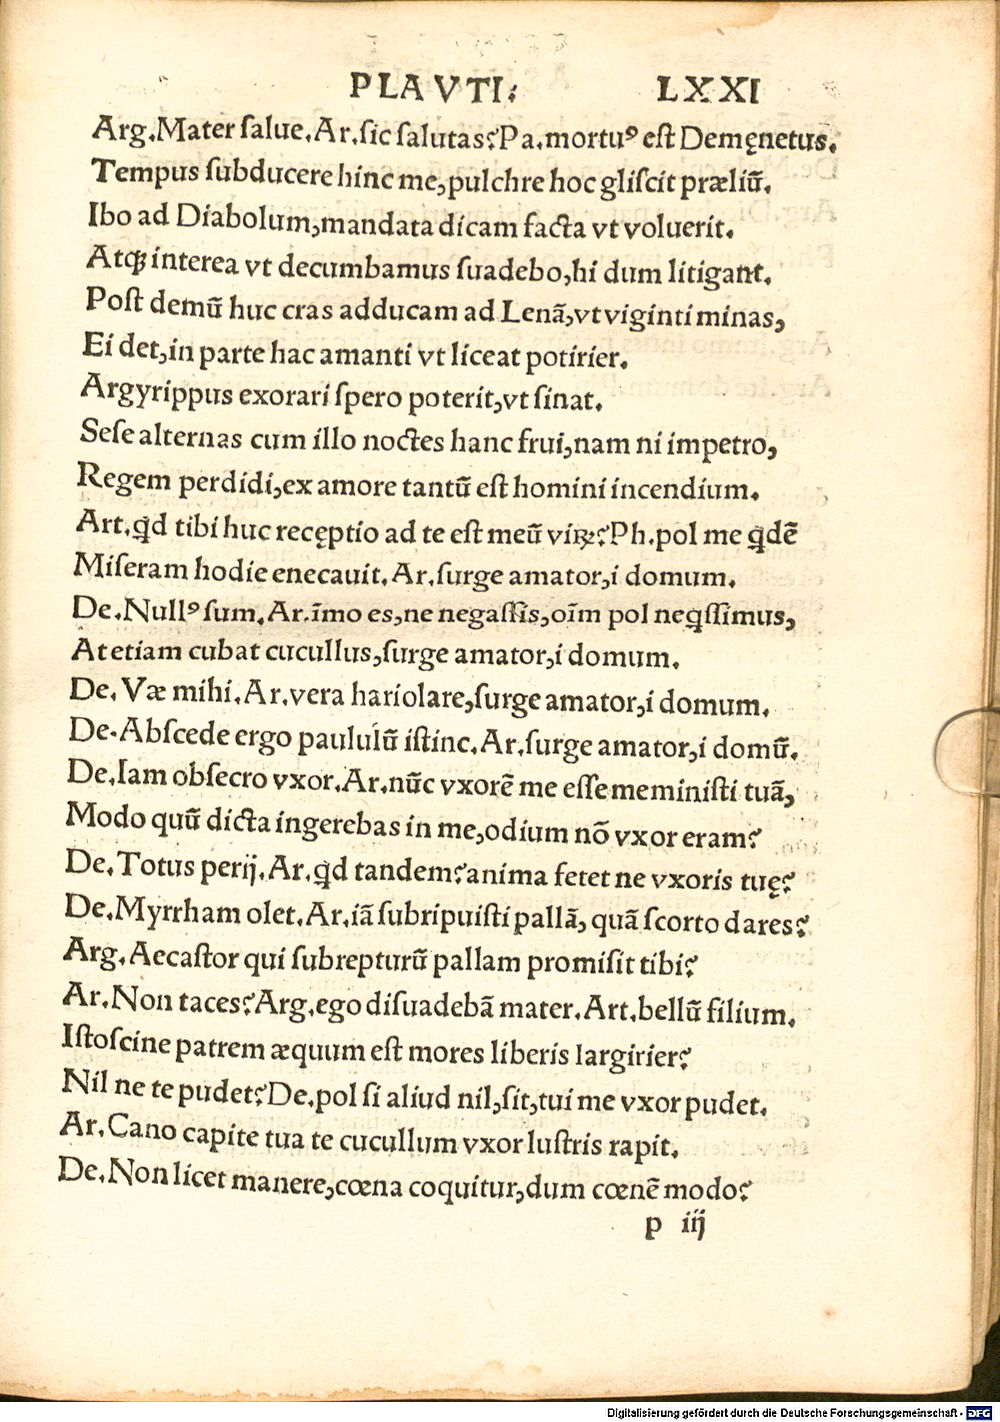 PLAVTI: LXXI
Arg.Mater salue.Ar.sic salutas?Pa.mortuꝰ est Demęnetus.
Tempus subducere hinc me,pulchre hoc gliscit præliū.
Ibo ad Diabolum,mandata dicam facta vt voluerit.
Atqꝫ interea vt decumbamus suadebo,hi dum litigant.
Post demū huc cras adducam ad Lenā,vt viginti minas,
Ei det,in parte hac amanti vt liceat potirier.
Argyrippus exorari spero poterit,vt sinat.
Sese alternas cum illo noctes hanc frui,nam ni impetro,
Regem perdidi,ex amore tantū est homini incendium.
Art.qd tibi huc recęptio ad te est meū viꝝ?Ph.pol me qdē
Miseram hodie enecauit.Ar.surge amator,i domum.
De.Nullꝰ sum.Ar.īmo es,ne negassis,oīm pol neqssimus,
At etiam cubat cucullus,surge amator,i domum.
De.Væ mihi.Ar.vera hariolare,surge amator,i domum.
De.Abscede ergo paululū istinc.Ar.surge amator,i domū.
De.Iam obsecro vxor.Ar.nūc vxorē me esse meministi tuā,
Modo quū dicta ingerebas in me,odium nō vxor eram?
De.Totus perij.Ar.qd tandem?anima fetet ne vxoris tuę?
De.Myrrham olet.Ar.iā subripuisti pallā,quā scorto dares?
Arg.Aecastor qui subrepturū pallam promisit tibi?
Ar.Non taces?Arg.ego disuadebā mater.Art.bellū filium.
Istoscine patrem æquum est mores liberis largirier?
Nil ne te pudet?De.pol si aliud nil,sit,tui me vxor pudet.
Ar.Cano capite tua te cucullum vxor lustris rapit.
De.Non licet manere,cœna coquitur,dum cœnē modo?
p iij
Digitalisierung gefördert durch die Deutsche Forschungsgemeinschaft - DFG